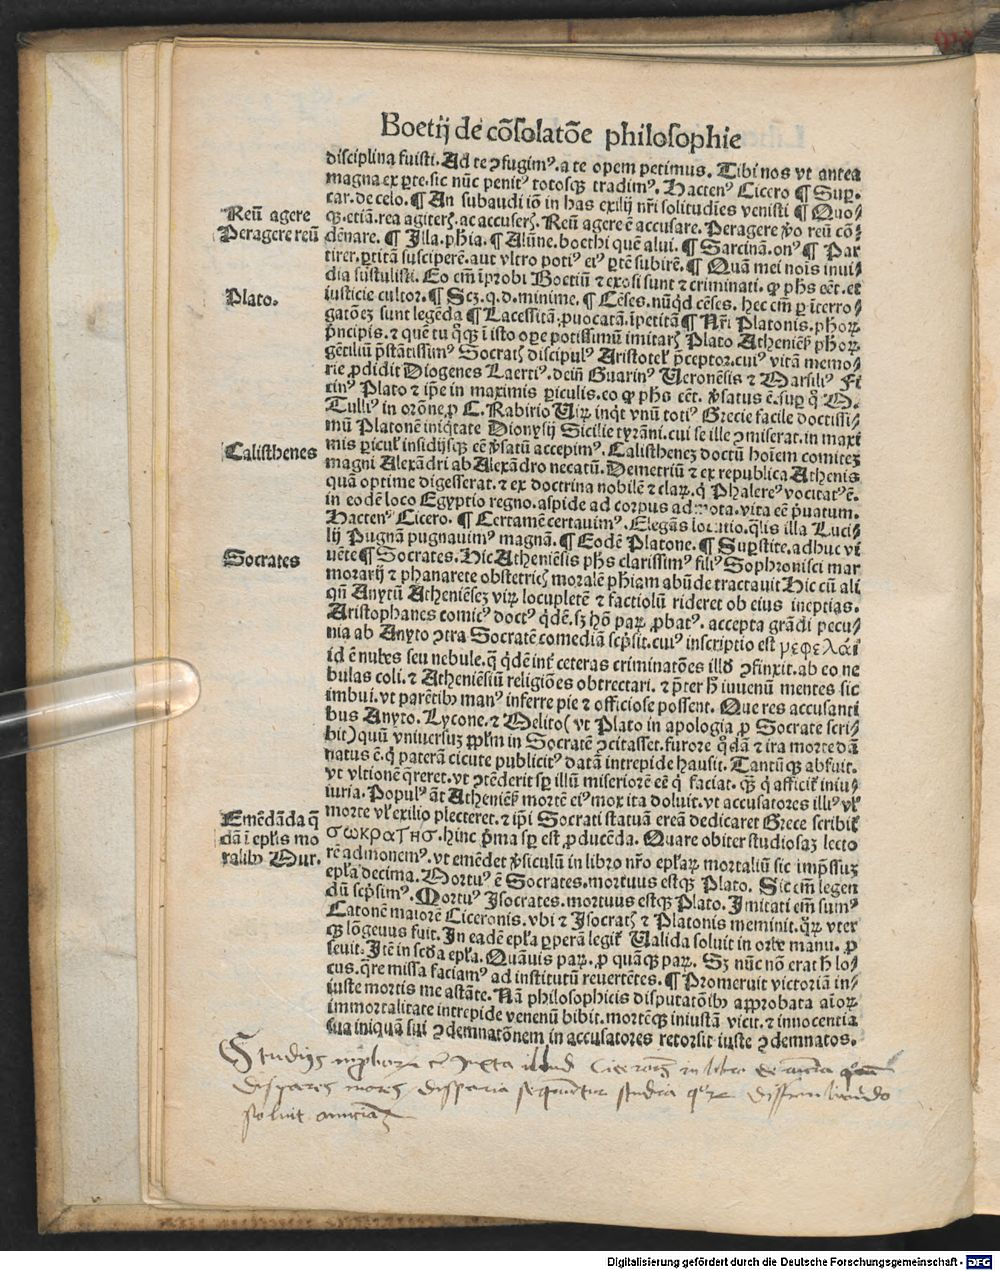 Boetij de cõsolatõe philosophie
disciplina fuisti. Ad te ꝯfugimꝰ. a te opem petimus. Tibi nos vt antea
magna ex ꝑte. sic nũc penitꝰ totosqꝫ tradimꝰ. Hactenꝰ Cicero ¶ Suꝑ.
car. de celo. ¶ An subaudi iõ in has exilij nr̃i solitudĩes venisti ¶ Quo⸗
qꝫ. etiã. rea agiterꝭ. ac accuserꝭ. Reũ agere ẽ accusare. Peragere ꝟo reũ cõ⸗
Reũ agere
Peragere reũ
dẽnare. ¶ Illa. pħia. ¶ Alũne. boethi quẽ alui. ¶ Sarcinã. onꝰ ¶ Par
tirer. ꝑtitã susciperẽ. aut vltro potiꝰ eiꝰ ꝑtẽ subirẽ. ¶ Quã mei noĩs inui⸗
dia sustulisti. Eo em̃ ĩprobi Boetiũ ⁊ exosi sunt ⁊ criminati. ꝙ pħs eẽt. et
Plato.
iusticie cultor. ¶ Scꝫ. q. d. minime. ¶ Cẽses. nũqd cẽses. hec em̃ ꝑ ĩterro⸗
gatõeꝫ sunt legẽda ¶ Lacessitã. ꝓuocatã. ĩpetitã ¶ Nr̃i Platonis. pħoꝝ
pͥncipis. ⁊ quẽ tu qͦqꝫ ĩ isto oꝑe potissimũ imitarꝭ Plato Atheniẽẜ pħoꝝ
gẽtiliũ pͥstãtissimꝰ Socratꝭ discipulꝰ Aristoteł pͥceptor. cuiꝰ vitã memo⸗
rie ꝓdidit Diogenes Laertiꝰ. dein̄ Guarinꝰ Veronẽsis ⁊ Marsiliꝰ Fi
cinꝰ Plato ⁊ ip̃e in maximis ꝑiculis. eo ꝙ pħs eẽt. ꝟsatus ẽ. suꝑ qͦ M.
Tulliꝰ in orõne ꝓ C. Rabirio Viꝝ inqͥt vnũ totiꝰ Grecie facile doctissi⸗
mũ Platonẽ iniqͥtate Dionysij Sicilie tyrãni. cui se ille ꝯmiserat. in maxi
mis ꝑicuł insidijsqꝫ eẽ ꝟsatũ accepimꝰ. Calisthenẽ doctũ hoĩem comiteꝫ
Calisthenes
magni Alexãdri ab Alexãdro necatũ. Demetriũ ⁊ ex republica Athenis
quã optime digesserat. ⁊ ex doctrina nobilẽ ⁊ claꝝ. qͥ Phalereꝰ vocitatꝰ ẽ.
in eodẽ loco Egyptio regno. aspide ad corpus admota. vita eẽ pͥuatum.
Hactenꝰ Cicero. ¶ Certamẽ certauimꝰ. Elegãs locutio. qͣlis illa Luci⸗
lij Pugnã pugnauimꝰ magnã. ¶ Eodẽ Platone. ¶ Suꝑstite. adhuc vi
Socrates
uẽte ¶ Socrates. Hic Atheniẽsis pħs clarissimꝰ filiꝰ Sophronisci mar
morarij ⁊ phanarete obstetricꝭ moralẽ pħiam abũde tractauit Hic cũ ali
qñ Anytũ Atheniẽseꝫ viꝝ locupletẽ ⁊ factiosũ rideret ob eius ineptias.
Aristophanes comicꝰ doctꝰ qͥdẽ. sꝫ hõ paꝝ ꝓbatꝰ. accepta grãdi pecu⸗
nia ab Anyto ꝯtra Socratẽ comediã scpͥsit. cuiꝰ inscriptio est νεφελάι
id ẽ nubes seu nebule. q̃ qͥdẽ int̃ ceteras criminatões illð ꝯfinxit. ab eo ne
bulas coli. ⁊ Atheniẽsiũ religiões obtrectari. ⁊ pͥter ħ iuuenũ mentes sic
imbui. vt parẽtibꝰ manꝰ inferre pie ⁊ officiose possent. Que res accusanti
bus Anyto. Lycone. ⁊ Melito( vt Plato in apologia ꝓ Socrate scri⸗
bit) quũ vniuersuꝫ pp̃łm in Socratẽ ꝯcitasset. furore qͦdã ⁊ ira morte dã
natus ẽ. qͥ paterã cicute publicitꝰ datã intrepide hausit. Tantũqꝫ abfuit.
vt vltionẽ qͣreret. vt ꝯtẽderit sꝑ illũ miseriorẽ eẽ qͥ faciat. qͣꝫ qͥ afficit̃ iniu⸗
iuria. Populꝰ aũt Atheniẽẜ mortẽ eiꝰ mox ita doluit. vt accusatores illiꝰ vł
morte vł exilio plecteret. ⁊ ip̃i Socrati statuã ereã dedicaret Grece scribit̃
Emẽdãda q̃
dã ĩ epłis mo
ralibꝰ Mur.
σωκρατησ. hinc pͥma sꝑ est ꝓducẽda. Quare obiter studiosaꝫ lecto
rẽ admonemꝰ. vt emẽdet ꝟsiculũ in libro nr̃o epłaꝝ mortaliũ sic imp̃ssuꝫ
epła decima. Mortuꝰ ẽ Socrates. mortuus estqꝫ Plato. Sic em̃ legen
dũ scpͥsimꝰ. Mortuꝰ Isocrates. mortuus estqꝫ Plato. Imitati em̃ sumꝰ
Catonẽ maiorẽ Ciceronis. vbi ⁊ Isocratꝭ ⁊ Platonis meminit. qͦꝝ vter
qꝫ lõgeuus fuit. In eadẽ epła ꝑperã legit̃ Valida soluit in orbe manu. ꝓ
seuit. Itẽ in scða epła. Quãuis paꝝ. ꝓ quãqꝫ paꝝ. Sꝫ nũc nõ erat ħ lo⸗
cus. qͣre missa faciamꝰ ad institutũ reuertẽtes. ¶ Promeruit victoriã in⸗
iuste mortis me astãte. Nã philosophicis disputatõibꝰ approbata aĩoꝝ
immortalitate intrepide venenũ bibit. mortẽqꝫ iniustã vicit. ⁊ innocentia
sua iniquã sui ꝯdemnatõnem in accusatores retorsit iuste ꝯdemnatos.
Studiũ ... Iuxta illud Ciceronis in libro de amicicia
dispares mores disparia sequuntur studia ... dissimilitudo
soluit amicicias